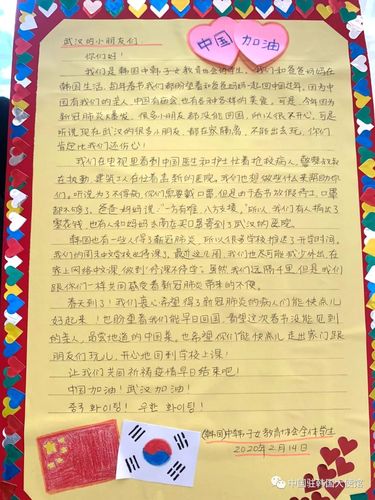 中国 加油
武汉的小朋友们
你们好！
我们是韩国中韩子女教育协会的学生，我们和爸爸妈妈在
韩国生活。每年春节我们都盼望着和爸爸妈妈一起回中国过年，因为中
国有我们的亲人，中国有庙会，也有各种各样的美食。可是，今年因为
新冠肺炎大暴发，很多小朋友都没能回国，所以很不开心。可是
听说现在武汉的很多小朋友，都在家隔离，不能出去玩，你们
肯定比我们还伤心！
我们在电视里看到中国医生和护士忙着抢救病人，警察叔叔
在执勤，建筑工人在忙着盖新的医院。我们也想做些什么来帮助你
们。听说为了不得病，你们需要戴口罩，但是由于春节放假停工，口罩
都不够了。爸爸妈妈说，“一方有难，八方支援。”所以，我们有人捐出了
零花钱，也有人和妈妈去商店买口罩寄到了武汉的医院。
韩国也有一些人得了新冠肺炎，所以很多学校推迟了开学时间。
我们的周末中文学校也停课了。最近这几周，我们也尽可能减少外出，在
家上网络中文课，做到“停课不停学”。虽然，我们远隔千里，但是我们
跟你们一样共同感受着新冠肺炎带来的不便。
春天到了！我们衷心希望得了新冠肺炎的病人们能快点儿
好起来！也盼望着我们能早日回国，看望这次春节没能见到
的亲人，品尝地道的中国菜。也希望你们能快点儿走出家门跟
朋友们玩儿，开心地回到学校上课！
让我们共同祈祷疫情早日结束吧！
中国加油！武汉加油！
중국 화이팅！ 우한 화이팅！
（韩国）中韩子女教育协会全体学生
2020年2月14日
中国驻韩国大使馆